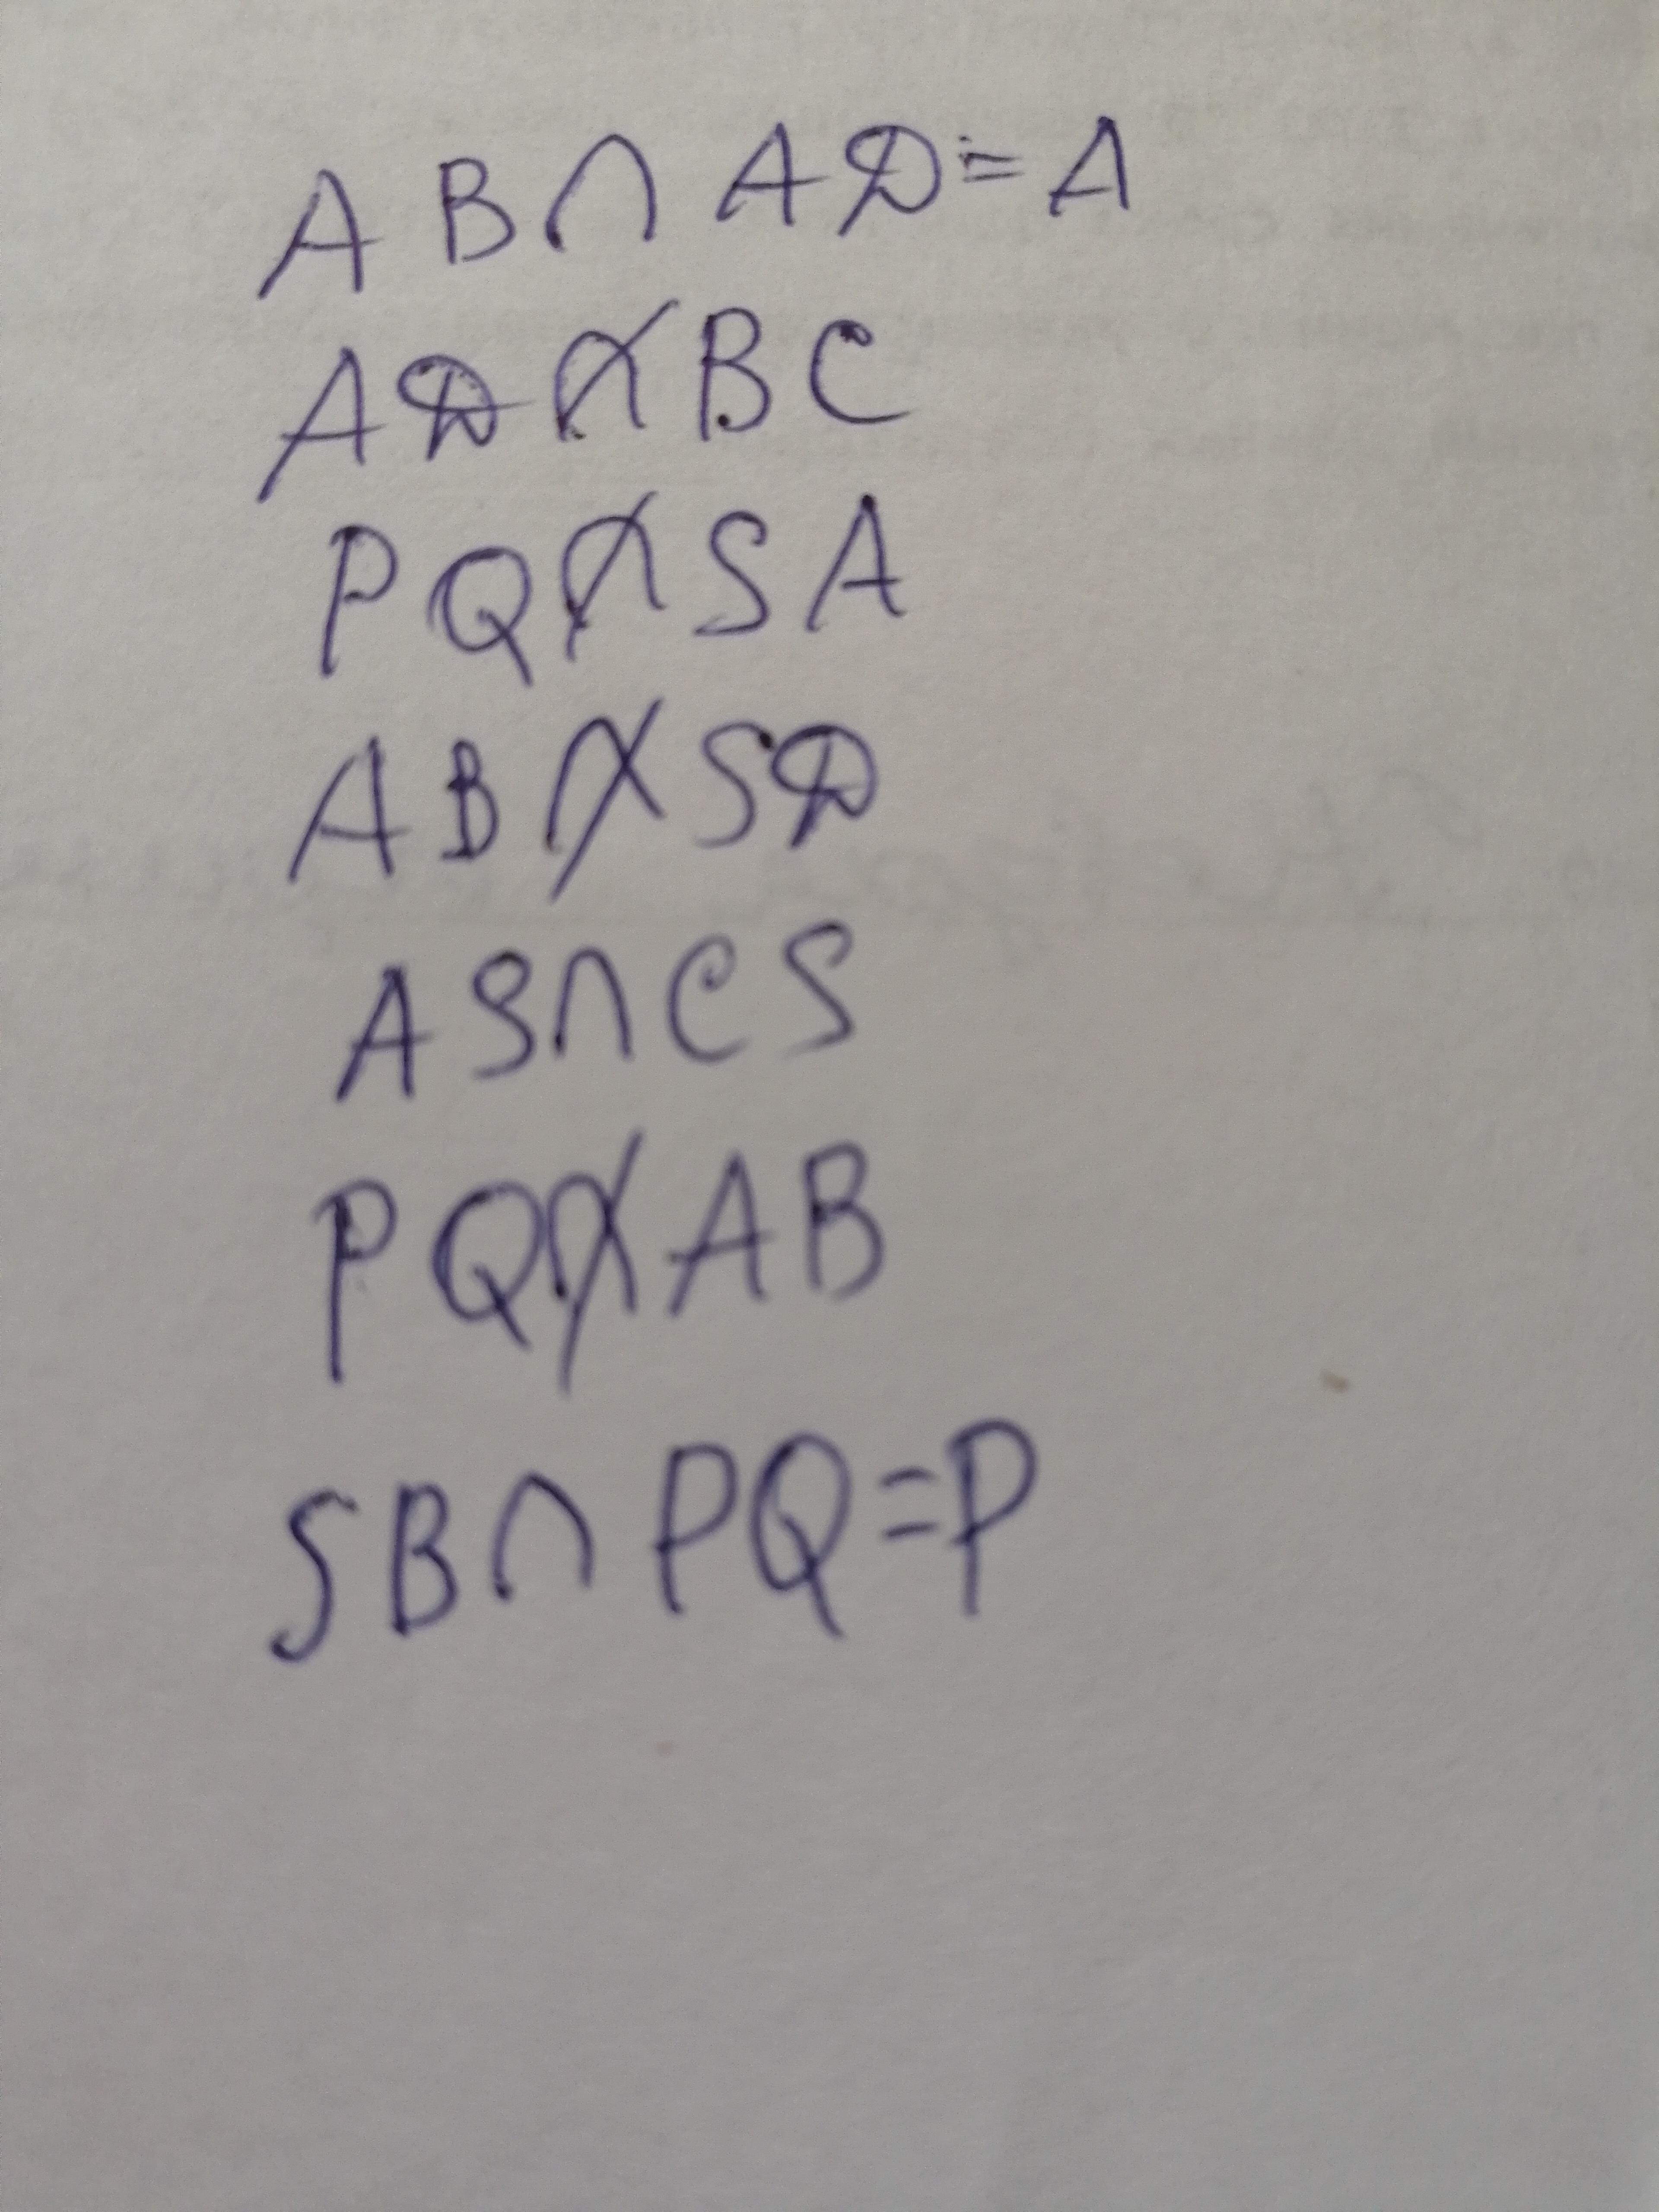 AB∩AD=A
AD∩̸BC
PQ∩̸SA
AB∩̸SD
AS∩CS
PQ∩̸AB
SB∩PQ=P